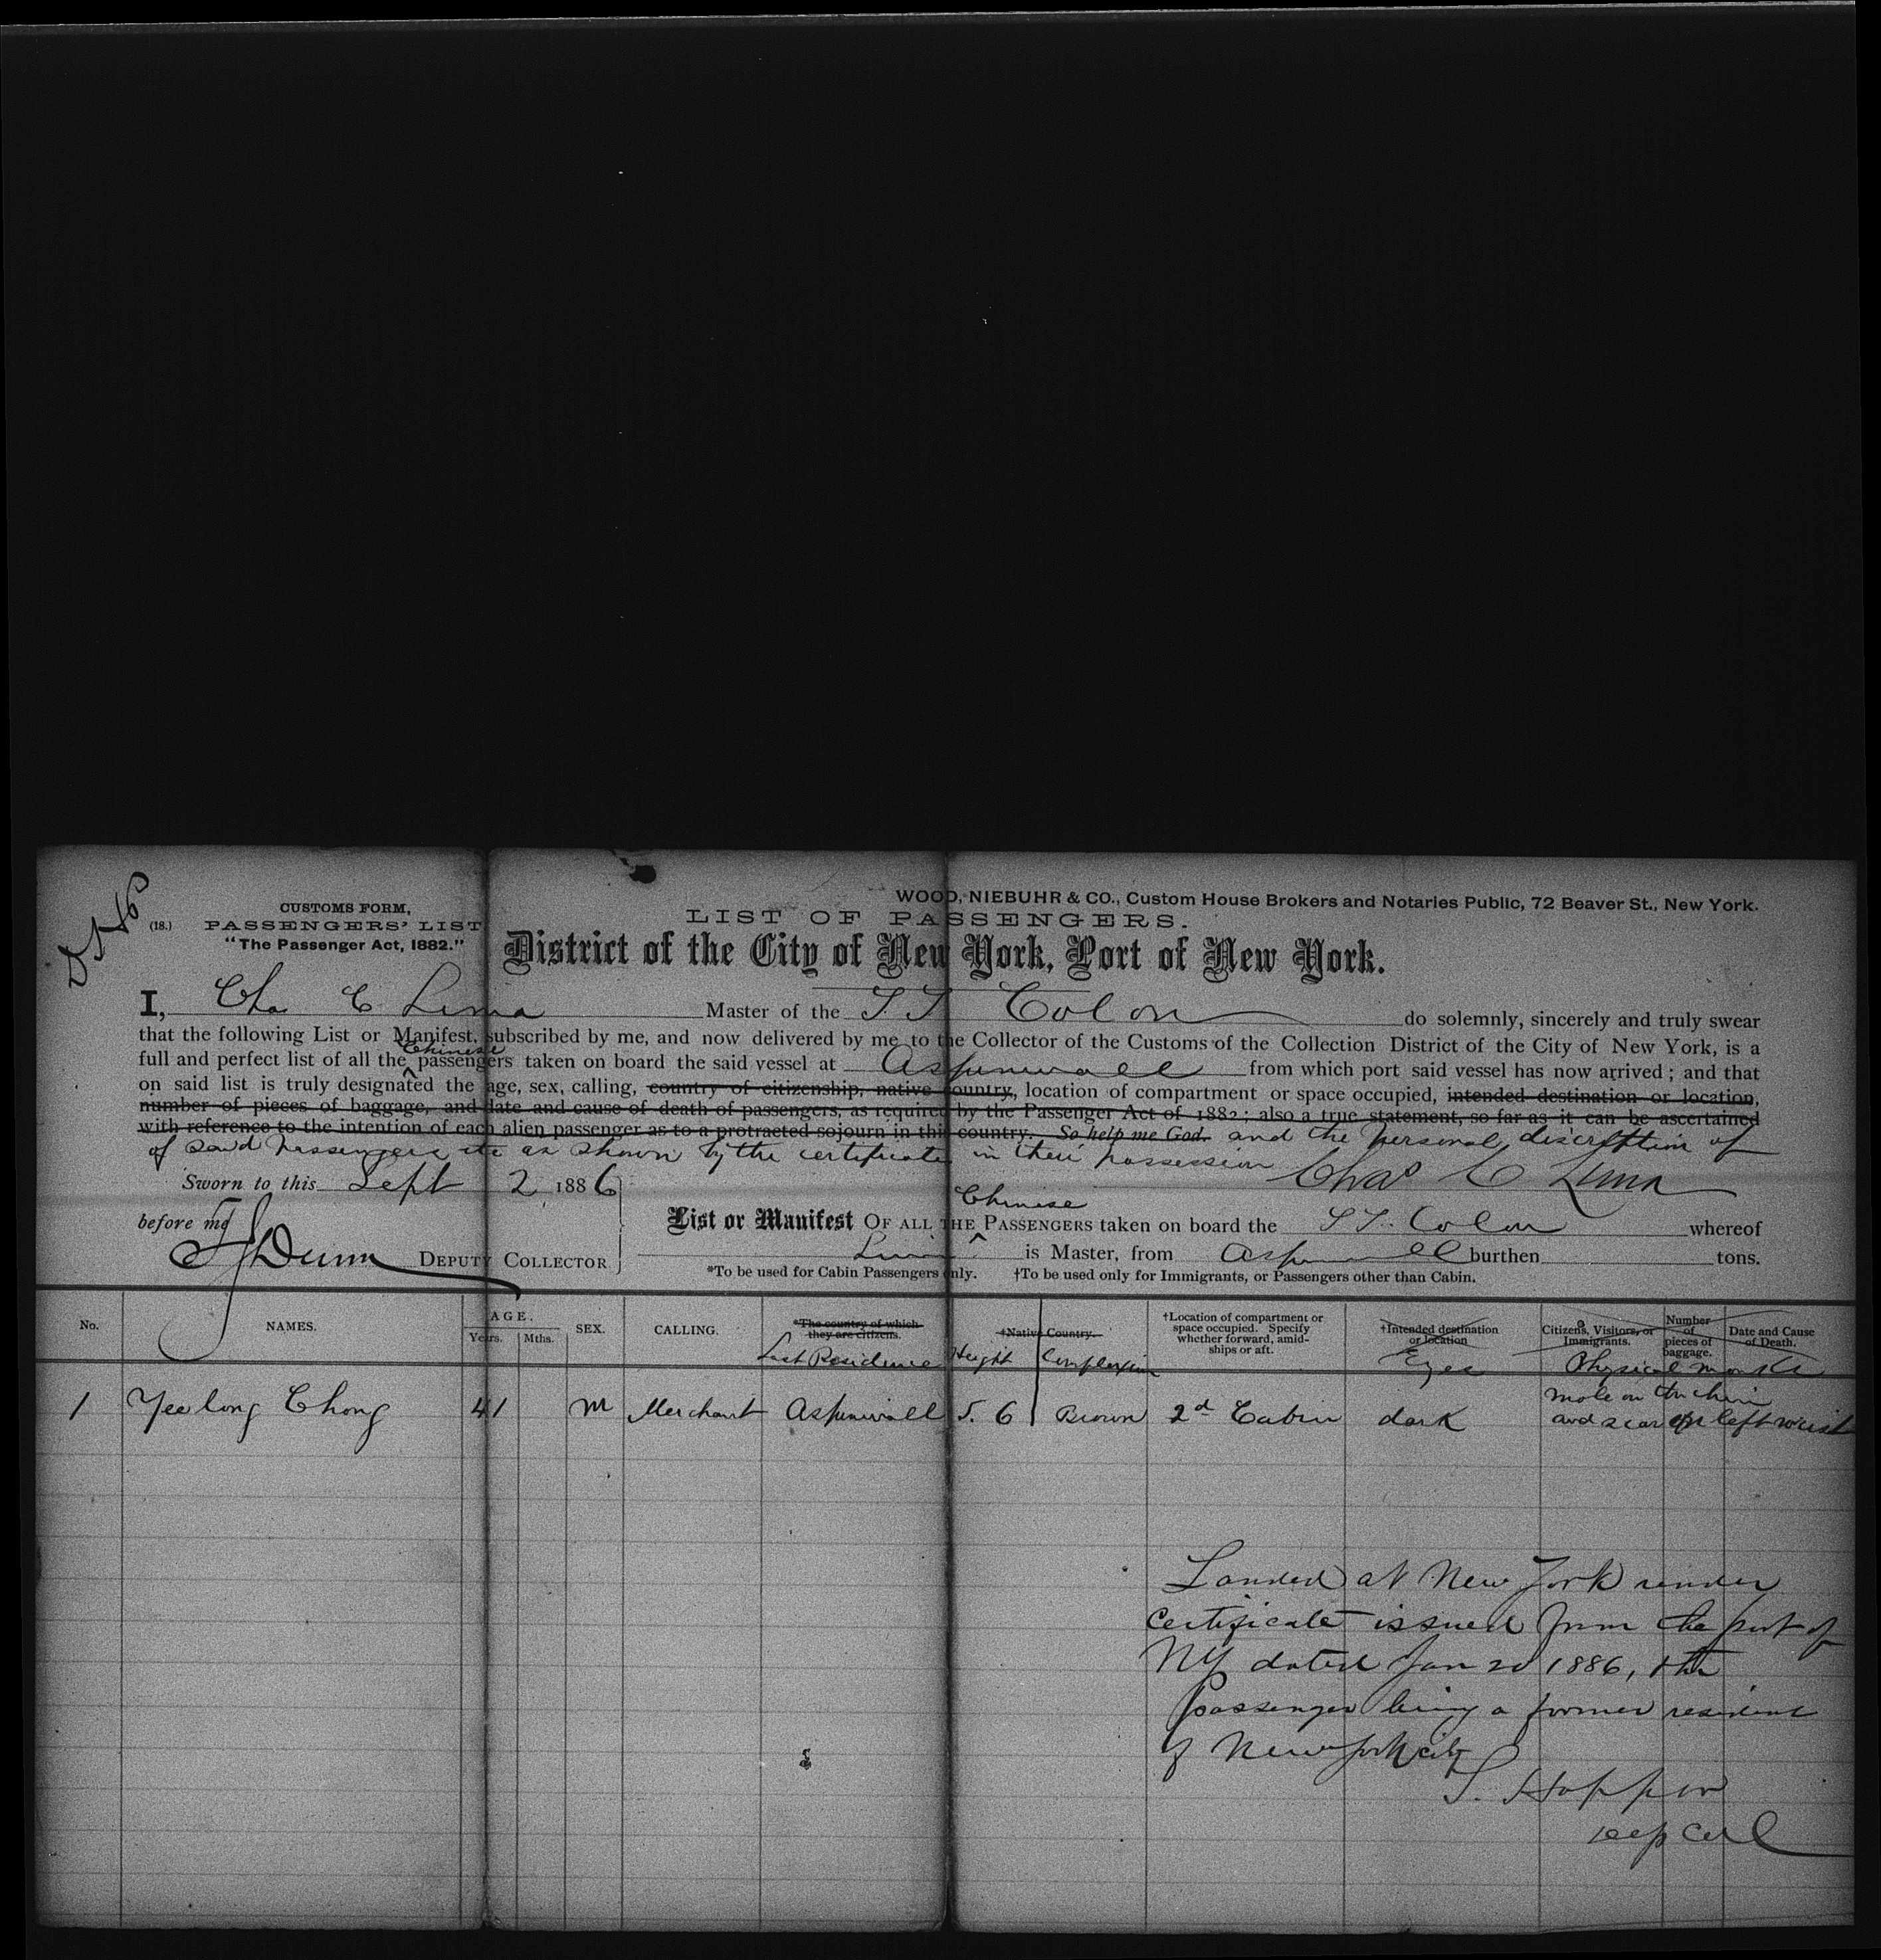 WOOD, NIEBUHR & CO., Custom House Brokers and Notaries Public, 72 Beaver St., New York.
(18.)
CUSTOMS FORM,
PASSENGERS' LIST
"The Passenger Act, 1882."
LIST OF PASSENGERS.
District of the City of New York, Port of New York.
I, Chas C Lima Master of the SS Colon do solemnly, sincerely and truly swear
that the following List or Manifest, subscribed by me, and now delivered by me to the Collector of the Customs of the Collection District of the City of New York, is a
full and perfect list of all the Chinese passengers taken on board the said vessel at Aspinwall from which port said vessel has now arrived; and that
on said list is truly designated the age, sex, calling, country of citizenship, native country, location of compartment or space occupied, intended destination or location,
number of pieces of baggage, and date and cause of death of passengers, as required by the Passenger Act of 1882; also a true statement, so far as it can be ascertained
with reference to the intention of each alien passenger as to a protracted sojourn in this country. So help me God. and the personal discription of
of said passengers etc as shown by the certificates in their possession Chas C Lima
Sworn to this Sept 2 1886
before me
Dunn DEPUTY COLLECTOR
List or Manifest OF ALL THE Chinese PASSENGERS taken on board the SS. Colon whereof
Lima is Master, from Aspinwall burthen tons.
*To be used for Cabin Passengers only. †To be used only for Immigrants, or Passengers other than Cabin.
No. NAMES. AGE. Years. Mths. SEX. CALLING. *The country of which they are citizens. Last Residence †Native Country. Height Complexion †Location of compartment or space occupied. Specify whether forward, amid-ships or aft. †Intended destination or location Eyes Citizens, Visitors, or Immigrants. Number of pieces of baggage. Date and Cause of Death. Physical marks
1 Yee long Chong 41 M Merchant Aspinwall 5. 6 Brown 2d Cabin dark mole on the chin and scar on left wrist
Landed at New York under
certificate issued from the port of
NY dated Jan 20 1886, the
passenger being a former resident
of New York city
S. Hopper
Dep Col